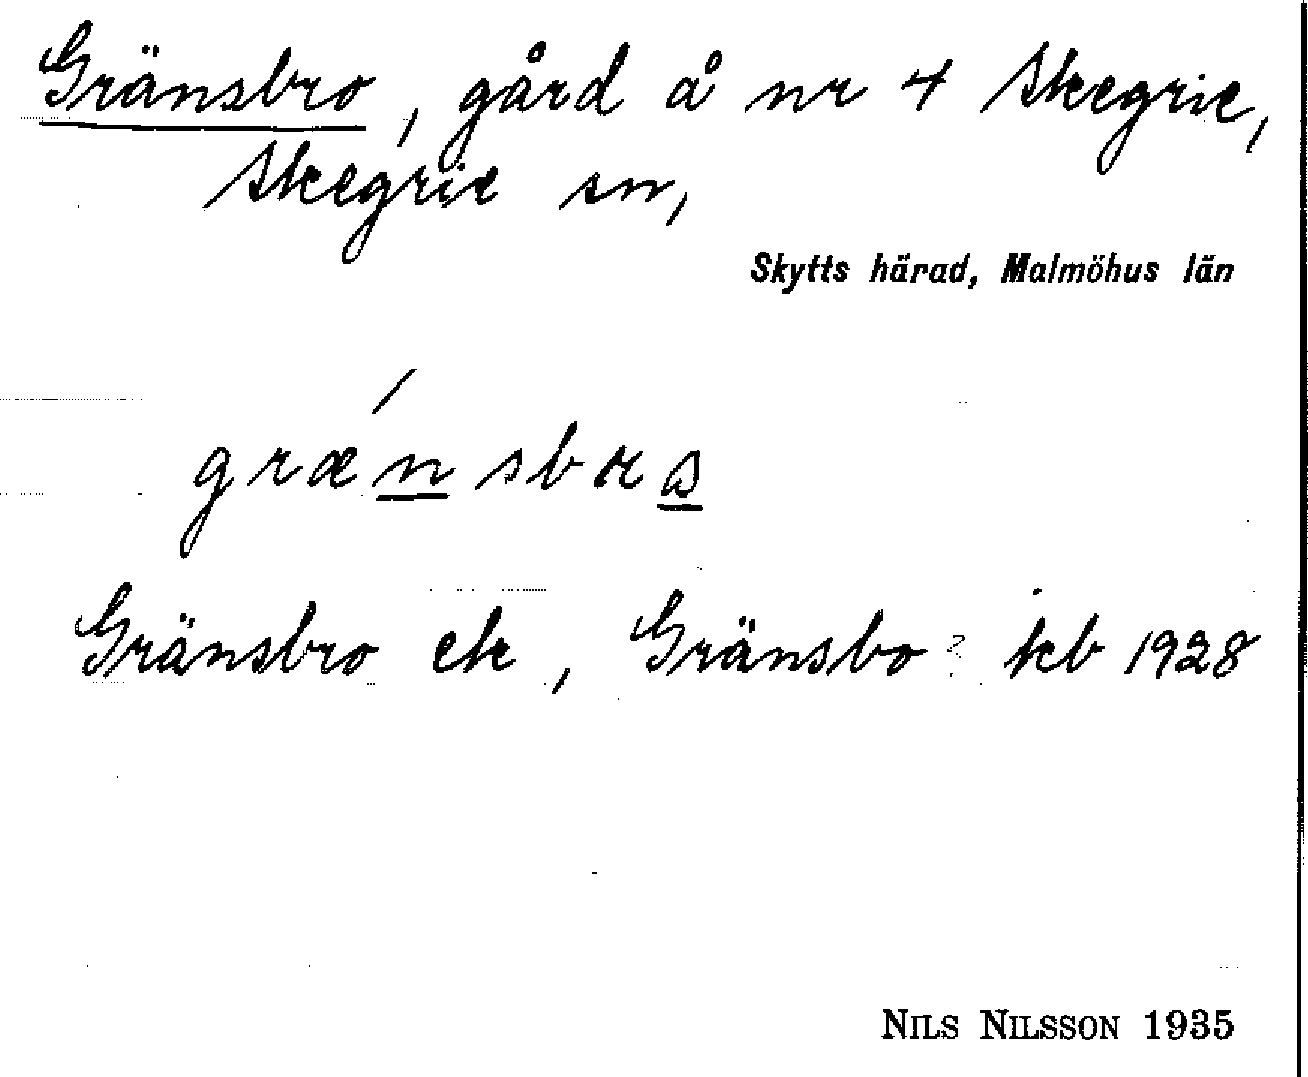 Gränsbro, gård å nr 4 Skegrie,
Skegrie sn,
Skytts härad, Malmöhus län
Gränsbro ek, Gränsbo? kb 1928
NILS NILSSON 1935